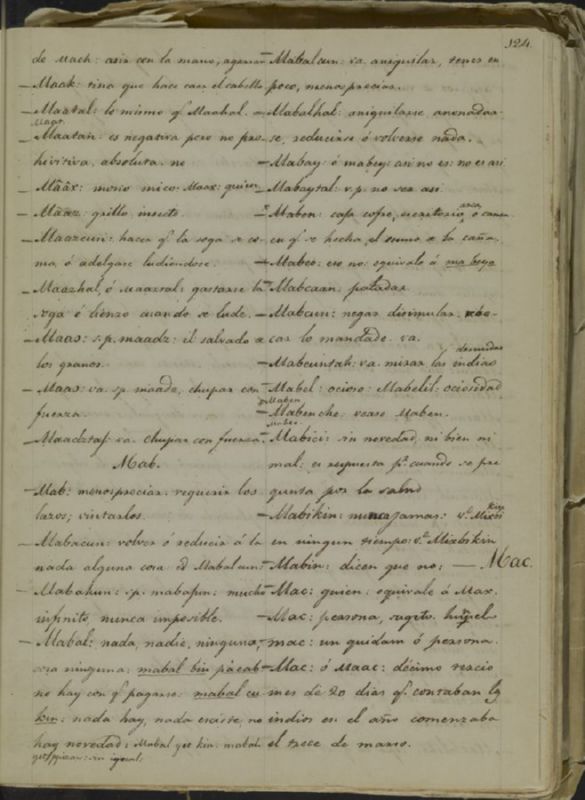 124
de mach: asir con la mano, agarrar
Maak: tina que hace caer el cabello
Maatal: lo mismo q.e Maahal.
Maatan: es negativa pero no pro-
hivitiva. absoluta. no
Maax: mono mico: Maax: quien
Maaz: grillo, insecto.
Maazcun: hacer q.e la soga se co-
ma, ó adelgase ludiendose.
Maazhal, ó Maaxtal: gastarse la
soga ó lienzo cuando se lude.
Maaɔ: s.p. maadz: el salvado a
los granos.
Maaɔ: va. sp. maadz, chupar con
fuerza.
Maadztah: va. chupar con fuerza.
Mab.
Mab: menospreciar. requerir los
lazos; visitarlos.
Mabacun: volver ó reducir á la
nada alguna cosa: id Mabalcun.
Mabahun: s.p. mabajun: mucho
infinito, nunca imposible.
Mabal: nada, nadie, ninguna,
cosa ninguna: mabal bin
no hay con q.e pagarse: mabal cu
kin: nada hay, nada existe, no
hay novedad: Mabal yet kin: mabal
sin igual:
Mabalcun: va. aniquilar, tener en
poco, menospreciar.
Mabalhal: aniquilarse anonadar-
se, reducirse ó volverse nada.
Mabay: ó mabey: asi no es: no es asi
Mabaytal: v.p. no ser asi.
Maben: caja cofre, escritorio, arca, ó canoa
en q.e se hecha el sumo a la caña.
Mabeo: eso no: equivale á ma beyo
Mabcaan: paladar.
Mabcun: negar disimular.
car lo mandado. va.
Mabcuntah: va. mirar las indias desnudas
Mabel: ocioso: Mabelil: ociosidad
Mabenche: vease Maben.
Mabici: sin novedad, ni bien ni
mal: es respuesta p.a cuando se pre
gunta por la salud
Mabikin: nunca jamas: v.e Mixbikin
en ningun tiempo: v.e Mixbikin
Mabin: dicen que no: — Mac.
Mac: quien: equivale á Max.
Mac: persona, sugeto.
mac: un quidam ó persona.
Mac: ó Maac: décimo tercio
mes de 20 dias q.e contaban los
indios en el año comenzaba
el trece de marzo.